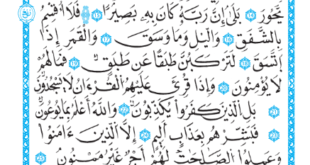 يَحُورَ ١٤ بَلَىٰٓ إِنَّ رَبَّهُۥ كَانَ بِهِۦ بَصِيرًا ١٥ فَلَآ أُقْسِمُ
بِٱلشَّفَقِ ١٦ وَٱلَّيْلِ وَمَا وَسَقَ ١٧ وَٱلْقَمَرِ إِذَا
ٱتَّسَقَ ١٨ لَتَرْكَبُنَّ طَبَقًا عَن طَبَقٍ ١٩ فَمَا لَهُمْ
لَا يُؤْمِنُونَ ٢٠ وَإِذَا قُرِئَ عَلَيْهِمُ ٱلْقُرْءَانُ لَا يَسْجُدُونَ ٢١
بَلِ ٱلَّذِينَ كَفَرُوا۟ يُكَذِّبُونَ ٢٢ وَٱللَّهُ أَعْلَمُ بِمَا يُوعُونَ ٢٣
فَبَشِّرْهُم بِعَذَابٍ أَلِيمٍ ٢٤ إِلَّا ٱلَّذِينَ ءَامَنُوا۟
وَعَمِلُوا۟ ٱلصَّٰلِحَٰتِ لَهُمْ أَجْرٌ غَيْرُ مَمْنُونٍۭ